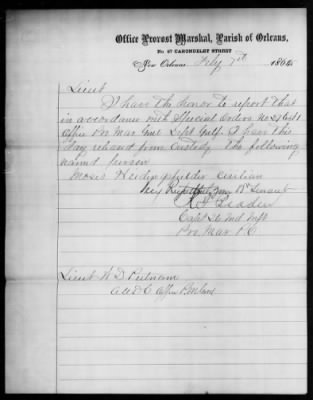 Office Provost Marshal, Parish of Orleans,
No 47 CARONDELET STREET
New Orleans July 7th 186
Lieut
I have the honor to report that
in accordance with Special Orders No
Office Pro Mar Genl Dept Gulf. I have this
day released from custody the following
named person
Moses civilian
Very Respectfully Your Obt Servant
Capt 26 Ind Inft
Pro. Mar. P.O
Lieut W D Putnam
A A D C Office P. M. Genl